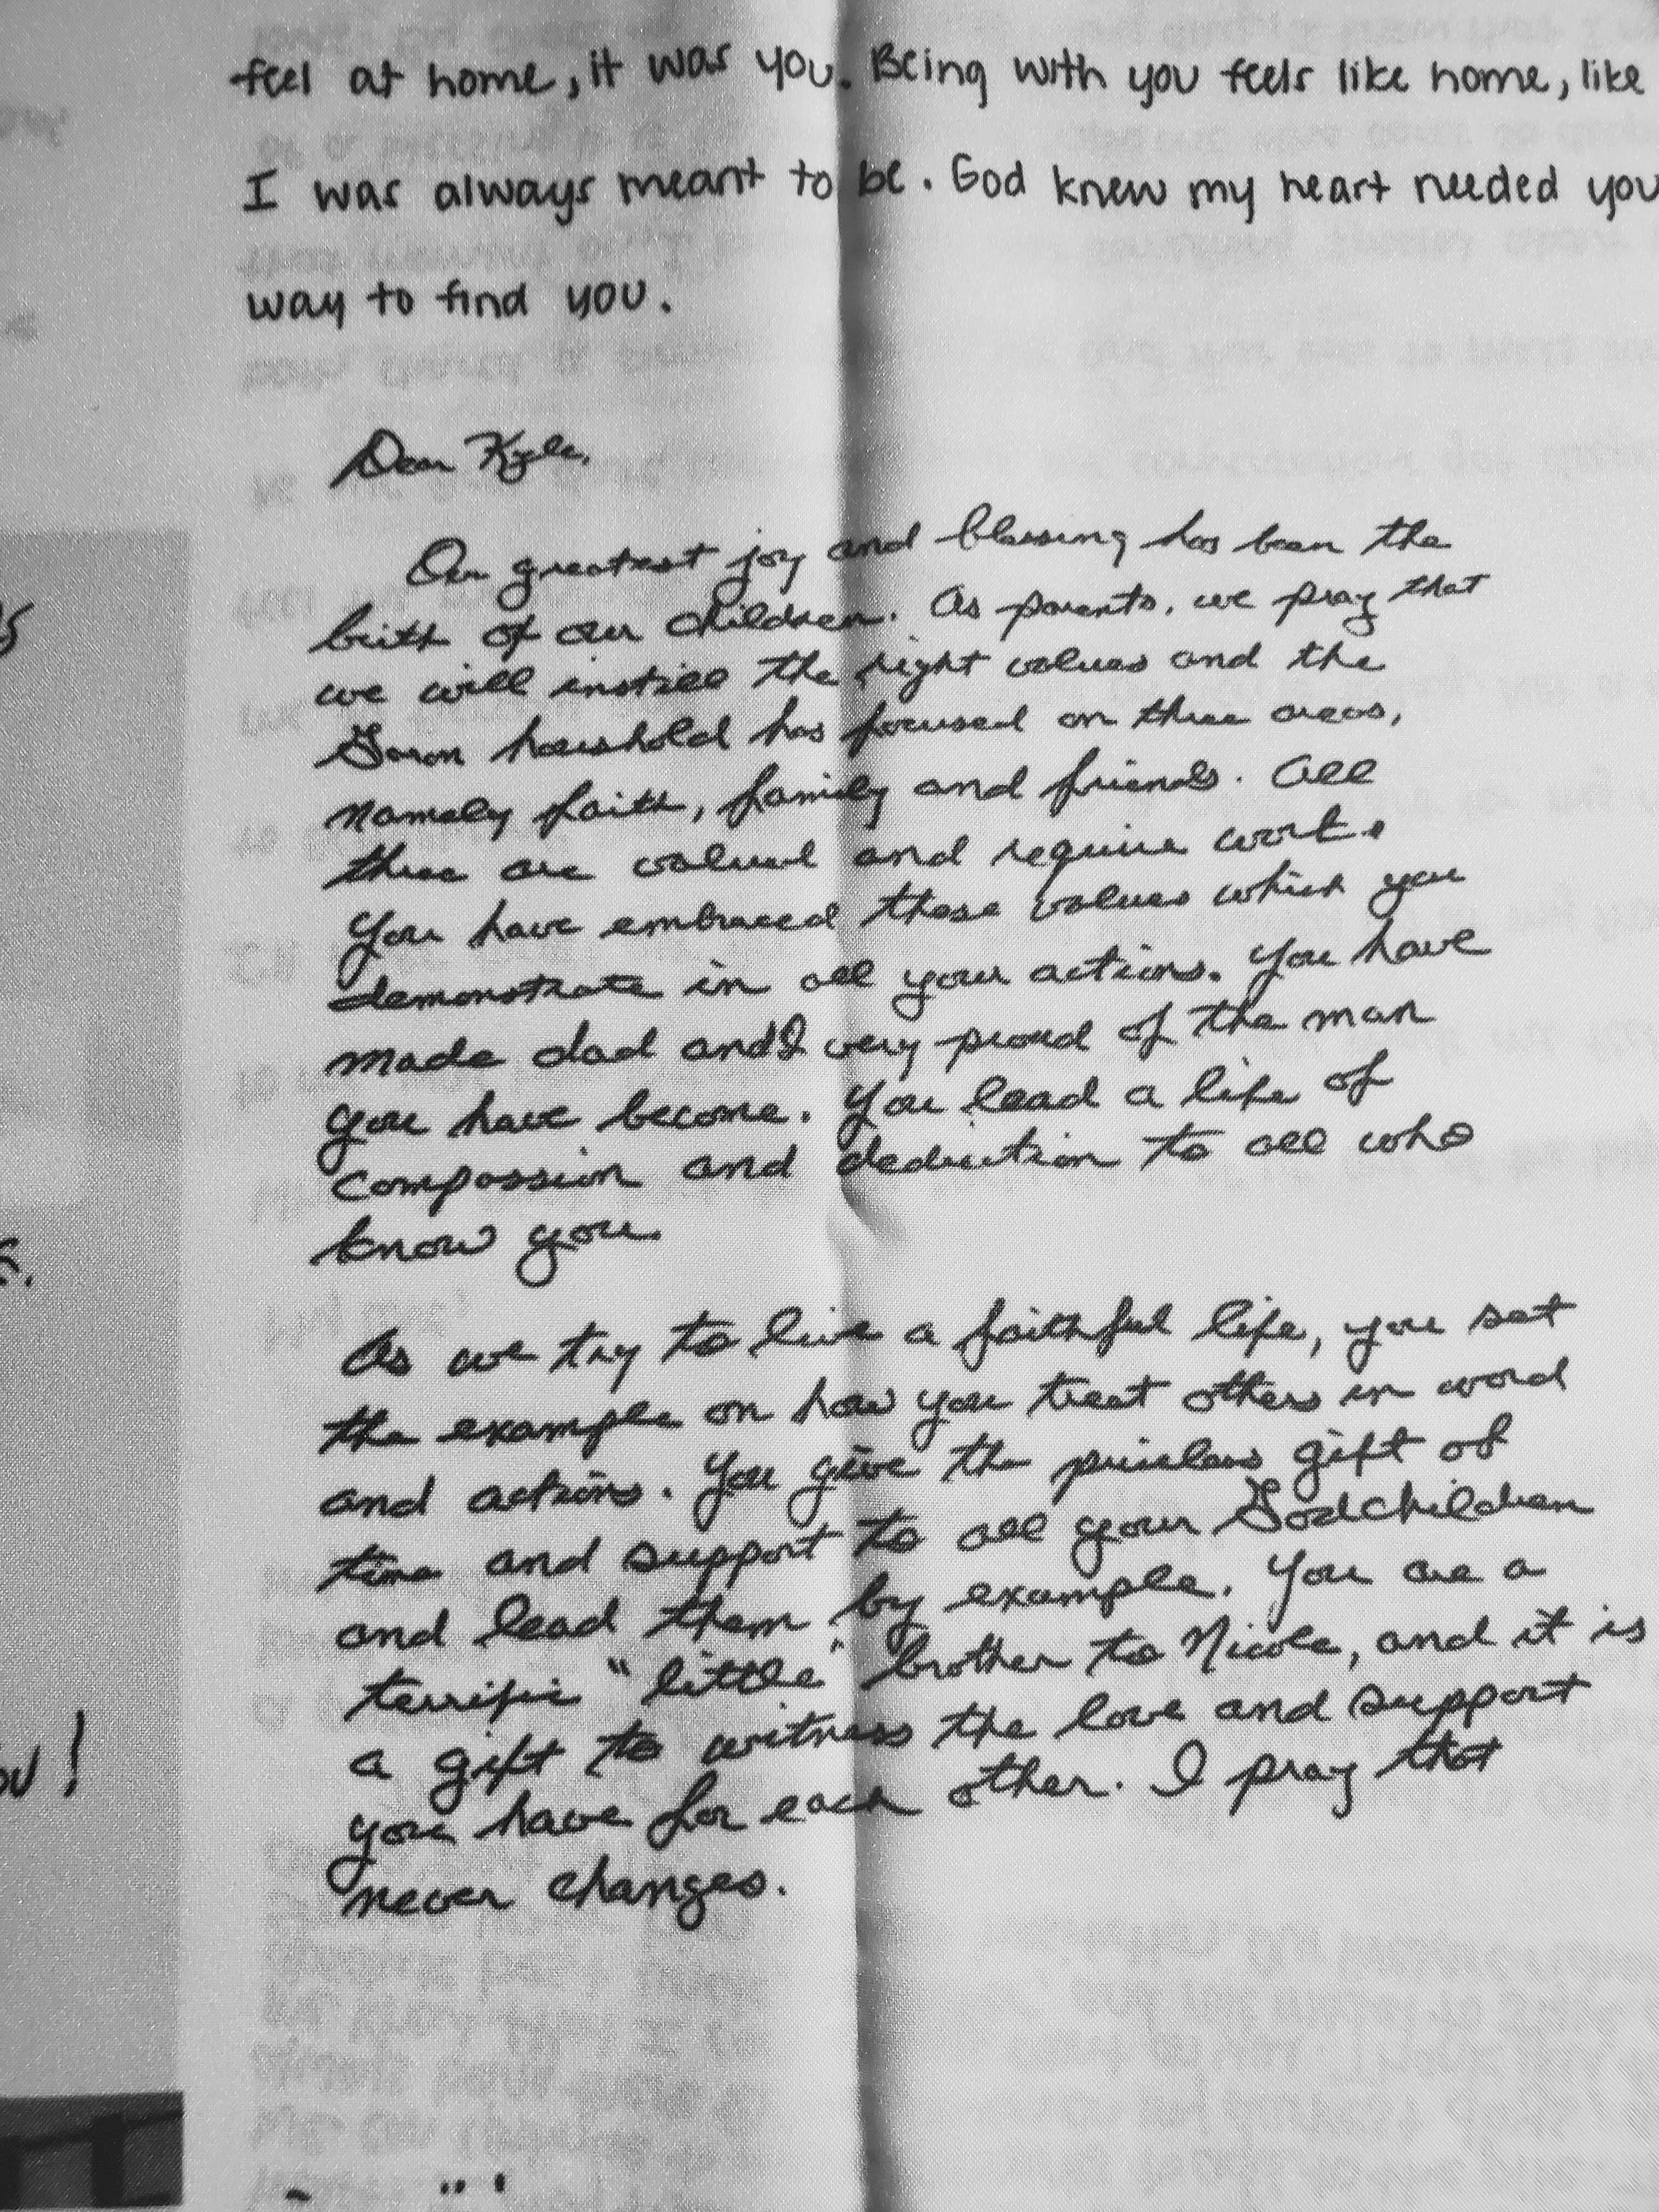 feel at home, it was you. Being with you feels like home, like
I was always meant to be. God knew my heart needed you
way to find you.
Dear Kyle,
Our greatest joy and blessing has been the
birth of our children. As parents, we pray that
we will instill the right values and the
household has focused on three areas,
namely faith, family and friends. All
three are valued and require work.
You have embraced these values which you
demonstrate in all your actions. You have
made dad and I very proud of the man
you have become. You lead a life of
compassion and dedication to all who
know you.
As we try to live a faithful life, you set
the example on how you treat others in word
and actions. You give the priceless gift of
time and support to all your Godchildren
and lead them by example. You are a
terrific "little" brother to Nicole, and it is
a gift to witness the love and support
you have for each other. I pray that
never changes.